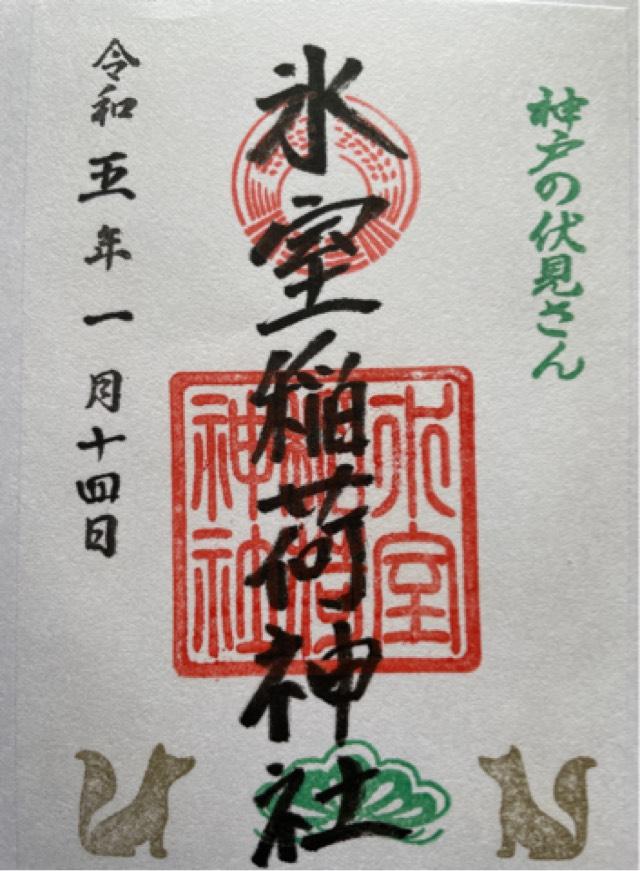 神戸の伏見さん
氷室稲荷神社
氷室
稲荷
神社
令和五年一月十四日